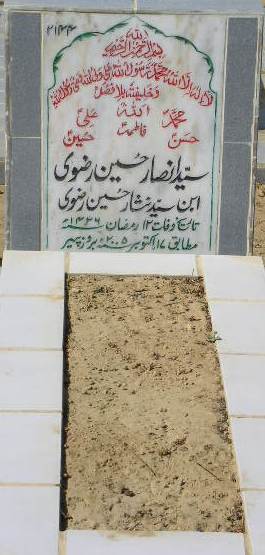 بسم اللہ الرحمن الرحیم
لا الہ الا اللہ محمد رسول اللہ علی ولی اللہ وصی رسول اللہ
وخلیفتہ بلا فصل
محمد اللہ علی
حسن فاطمہ حسین
سید انصار حسین رضوی
ابن سید نثار حسین رضوی
تاریخ وفات ۱۲ رمضان ۱۴۲۶ھ
مطابق ۱۷ اکتوبر ۲۰۰۵ء بروز پیر